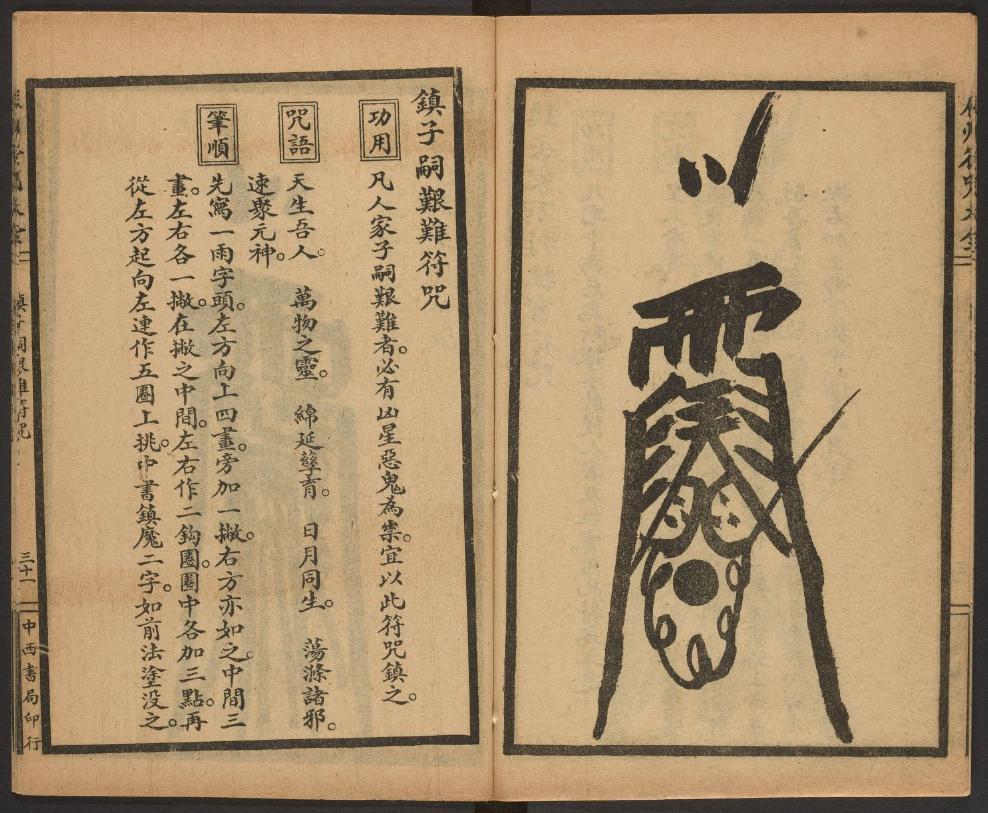 鎮子嗣艱難符咒
功用
凡人家子嗣艱難者。必有凶星惡鬼為祟。宜以此符咒鎮之。
咒語
天生吾人。 萬物之靈。 綿延孳育。 日月同生。 蕩滌諸邪。
速聚元神。
筆順
先寫一雨字頭。左方向上四畫。旁加一撇。右方亦如之。中間三
畫。左右各一撇。在撇之中間。左右作二鈎圈。圈中各加三點。再
從左方起向左連作五圈上挑。中書鎮魔二字。如前法塗没之。
鎮子嗣艱難符咒
三十一
中西書局印行